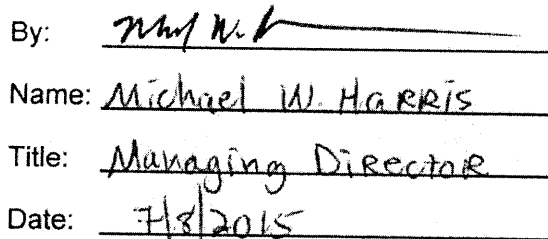 By:
Name: Michael W. HaRRis
Title: Managing DiRectoR
Date: 7/8/2015